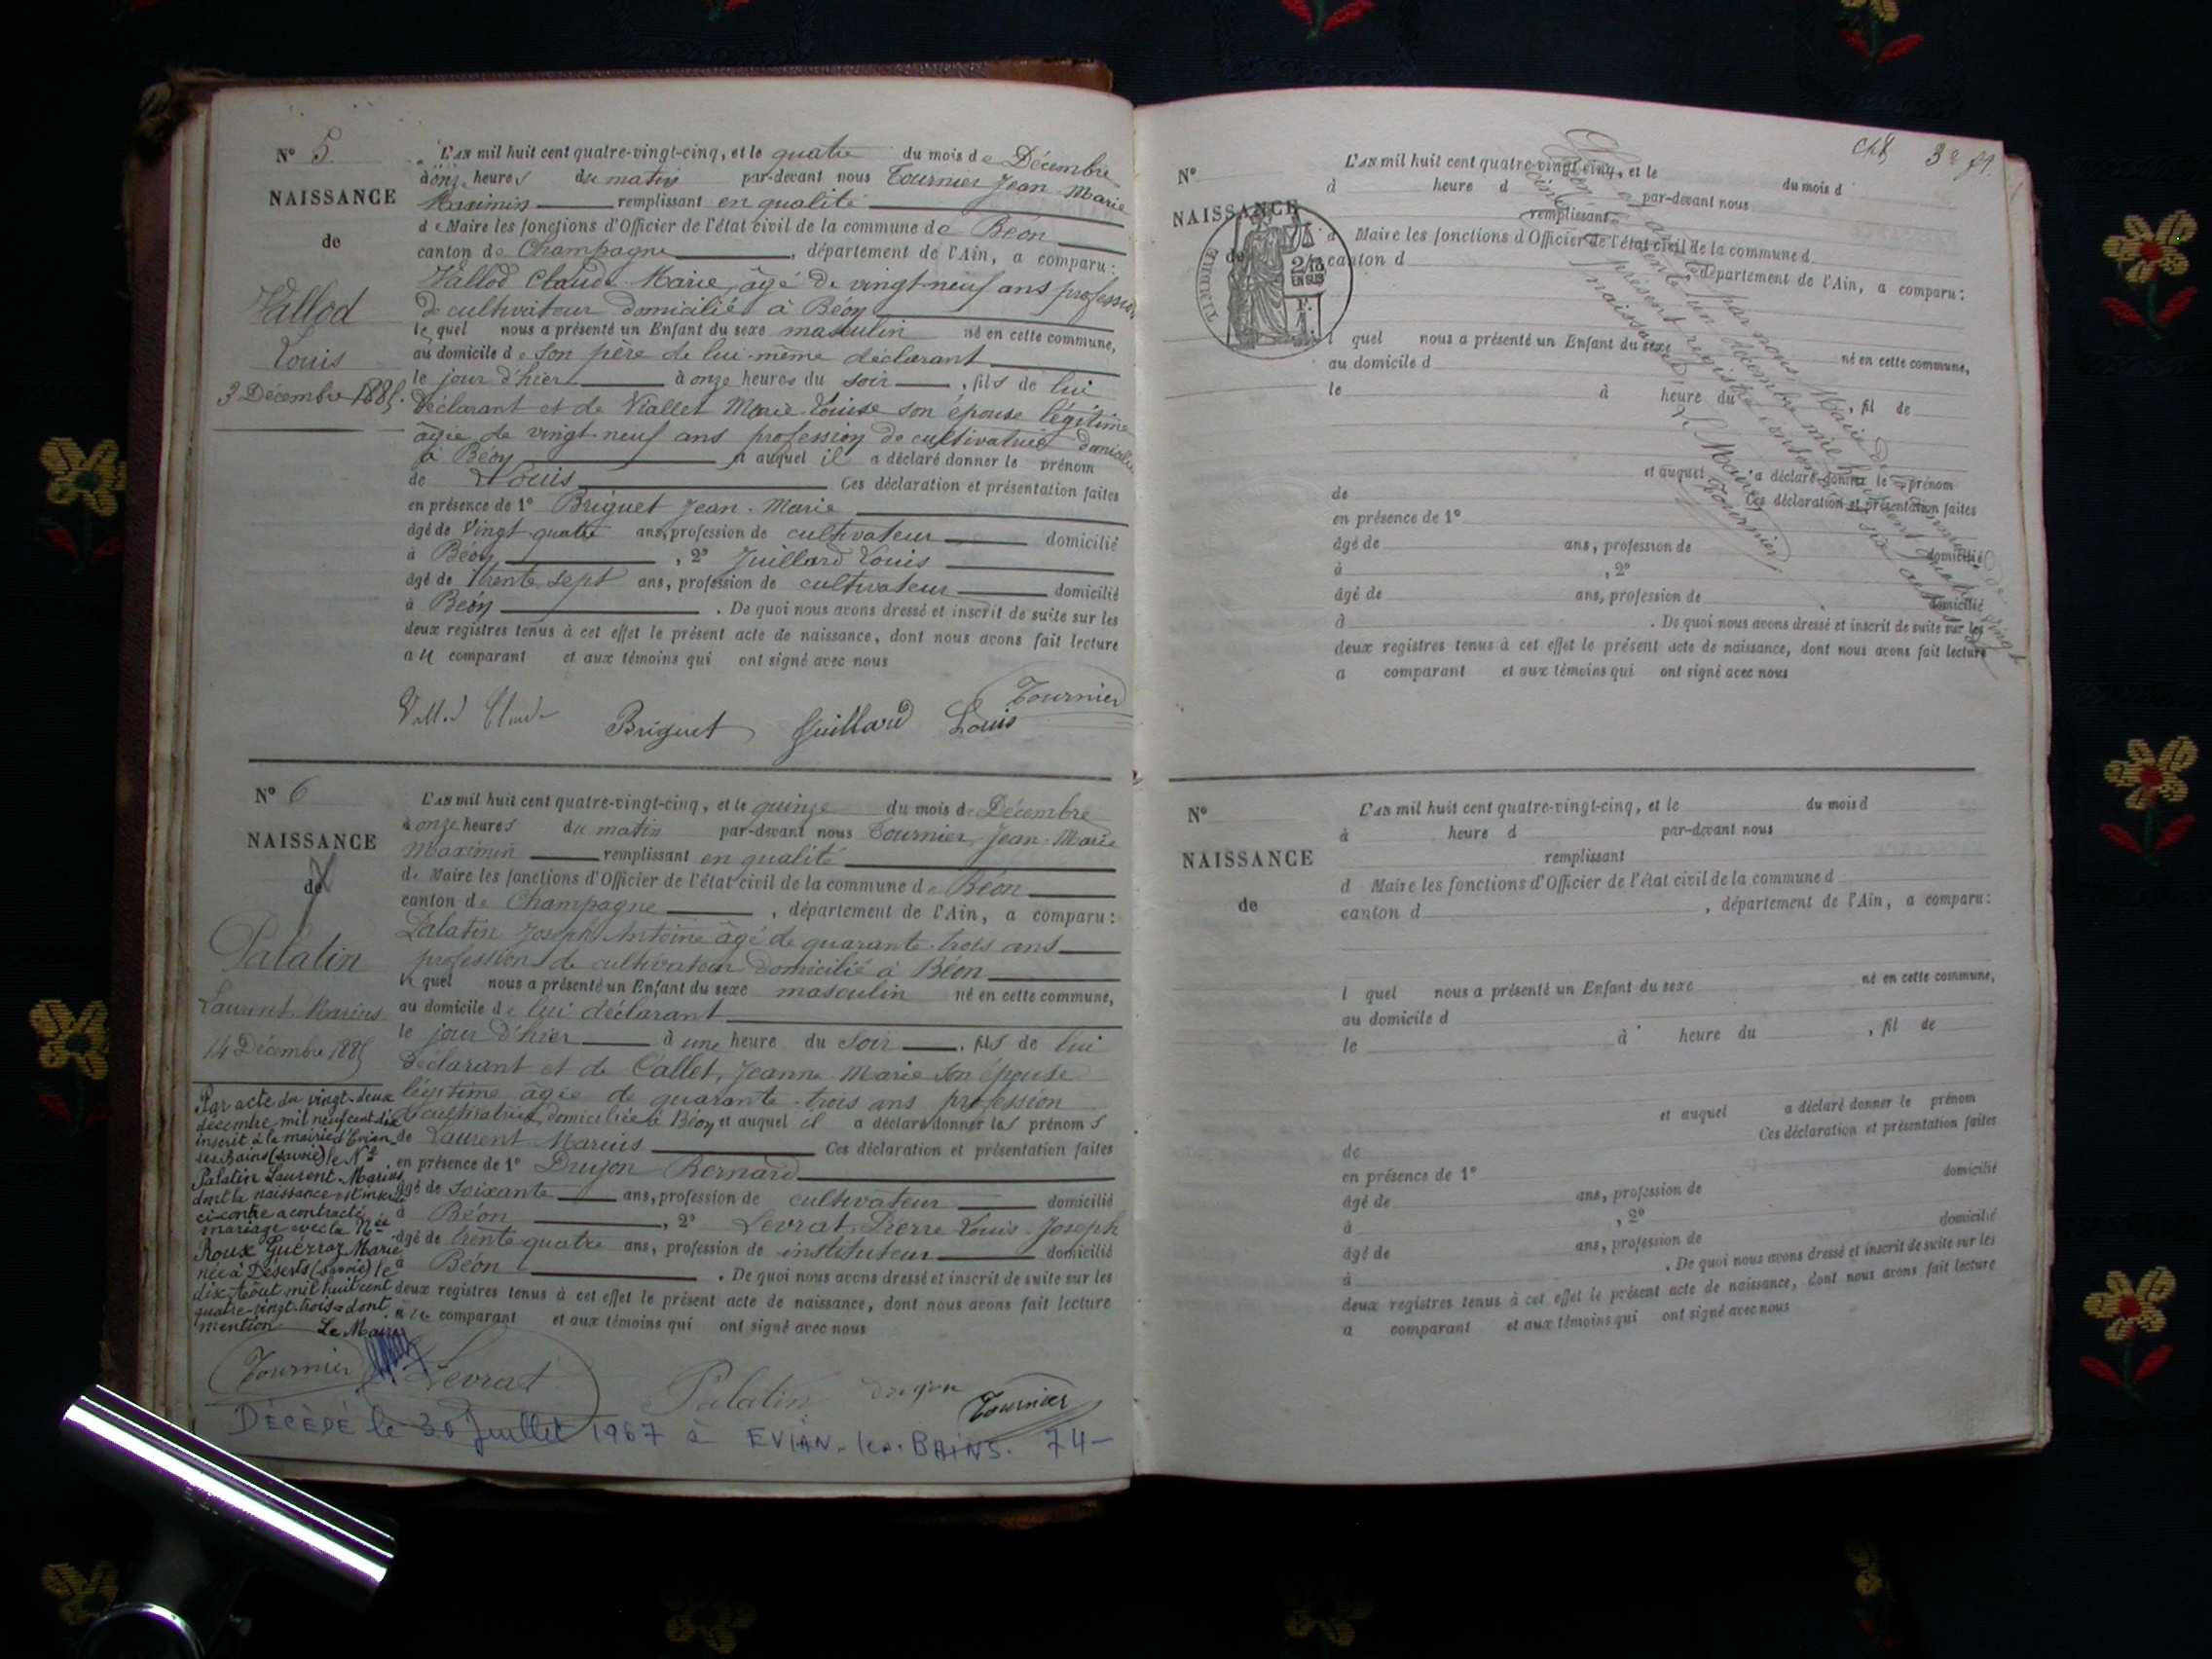 N° 5
NAISSANCE
de
Vallod
Louis
3 Décembre 1885.
L'AN mil huit cent quatre-vingt-cinq, et le quatre du mois de Décembre
à onze heures du matin par-devant nous Tournier Jean-Marie
Maximin remplissant en qualité
de Maire les fonctions d'Officier de l'état civil de la commune de Béon
canton de Champagne, département de l'Ain, a comparu:
Vallod Claude Marie, âgé de vingt-neuf ans profession
de cultivateur domicilié à Béon
lequel nous a présenté un Enfant du sexe masculin né en cette commune,
au domicile de son père de lui-même déclarant
le jour d'hier à onze heures du soir, fils de lui
déclarant et de Viallet Marie Louise son épouse légitime
âgée de vingt-neuf ans profession de cultivatrice domiciliée
à Béon et auquel il a déclaré donner le prénom
de Louis Ces déclaration et présentation faites
en présence de 1° Briguet Jean-Marie
âgé de Vingt quatre ans, profession de cultivateur domicilié
à Béon, 2° Juillard Louis
âgé de trente sept ans, profession de cultivateur domicilié
à Béon. De quoi nous avons dressé et inscrit de suite sur les
deux registres tenus à cet effet le présent acte de naissance, dont nous avons fait lecture
au comparant et aux témoins qui ont signé avec nous
Vallod Claude Briguet Juillard Louis Tournier
N° 6
NAISSANCE
de
Palatin
Laurent Marius
14 Décembre 1885
L'AN mil huit cent quatre-vingt-cinq, et le quinze du mois de Décembre
à onze heures du matin par-devant nous Tournier Jean-Marie
Maximin remplissant en qualité
de Maire les fonctions d'Officier de l'état civil de la commune de Béon
canton de Champagne, département de l'Ain, a comparu:
Palatin Joseph Antoine âgé de quarante-trois ans
profession de cultivateur domicilié à Béon
lequel nous a présenté un Enfant du sexe masculin né en cette commune,
au domicile de lui déclarant
le jour d'hier à une heure du soir, fils de lui
déclarant et de Callet, Jeanne Marie son épouse
légitime âgée de quarante-trois ans profession
de cultivatrice domiciliée à Béon et auquel il a déclaré donner les prénoms
de Laurent Marius Ces déclaration et présentation faites
en présence de 1° Dujon Bernard
âgé de soixante ans, profession de cultivateur domicilié
à Béon, 2° Levrat Pierre Louis Joseph
âgé de trente quatre ans, profession de instituteur domicilié
à Béon. De quoi nous avons dressé et inscrit de suite sur les
deux registres tenus à cet effet le présent acte de naissance, dont nous avons fait lecture
comparant et aux témoins qui ont signé avec nous
Par acte du vingt-deux
décembre mil neuf cent dix
inscrit à la mairie d'Evian
les Bains (savoie) le N°
Palatin Laurent-Marius
dont la naissance est inscrite
ci-contre a contracté
mariage avec la Née
Roux Guerraz Marie
née à Déserts (savoie) le
dix Août mil huit cent
quatre-vingt-trois = dont
mention Le Maire
Tournier Levrat Palatin Dujon Tournier
DÉCÉDÉ le 30 Juillet 1967 à EVIAN-les-BAINS. 74-
3e f1.
N°
NAISSANCE
de
TIMBRE
2/10
EN SUS
L'AN mil huit cent quatre-vingt-cinq, et le du mois d
à heure d par-devant nous
remplissant
d Maire les fonctions d'Officier de l'état civil de la commune d
canton d département de l'Ain, a comparu:
l quel nous a présenté un Enfant du sexe né en cette commune,
au domicile d
le à heure du, fil de
et auquel a déclaré donner le prénom
de Ces déclaration et présentation faites
en présence de 1°
âgé de ans, profession de domicilié
à, 2°
âgé de ans, profession de domicilié
à. De quoi nous avons dressé et inscrit de suite sur les
deux registres tenus à cet effet le présent acte de naissance, dont nous avons fait lecture
a comparant et aux témoins qui ont signé avec nous
par nous Maire de
décembre mil huit cent quatre vingt
présent registre
naissances
Le Maire
Tournier
N°
NAISSANCE
de
L'AN mil huit cent quatre-vingt-cinq, et le du mois d
à heure d par-devant nous
remplissant
d Maire les fonctions d'Officier de l'état civil de la commune d
canton d, département de l'Ain, a comparu:
l quel nous a présenté un Enfant du sexe né en cette commune,
au domicile d
le à heure du, fil de
et auquel a déclaré donner le prénom
de Ces déclaration et présentation faites
en présence de 1°
âgé de ans, profession de domicilié
à, 2°
âgé de ans, profession de domicilié
à. De quoi nous avons dressé et inscrit de suite sur les
deux registres tenus à cet effet le présent acte de naissance, dont nous avons fait lecture
a comparant et aux témoins qui ont signé avec nous